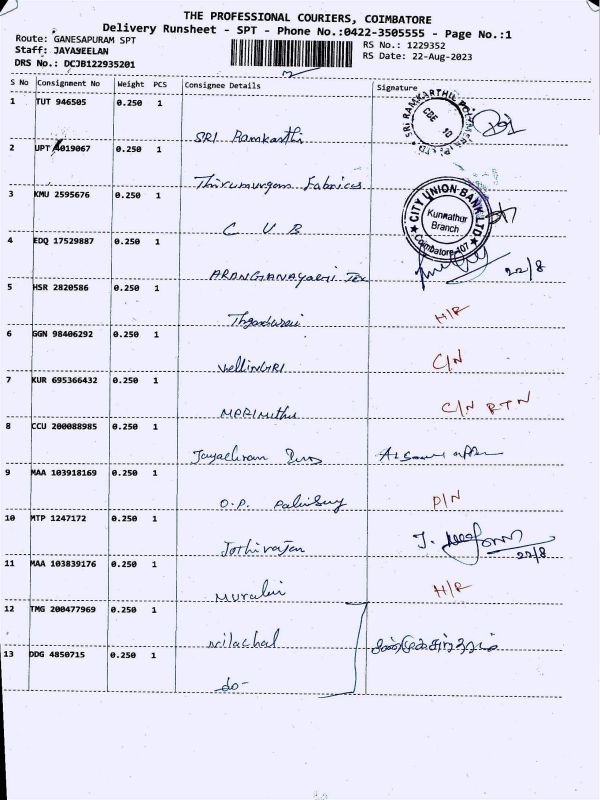 THE PROFESSIONAL COURIERS, COIMBATORE
Delivery Runsheet - SPT - Phone No.:0422-3505555 - Page No.:1
Route: GANESAPURAM SPT
RS No.: 1229352
Staff: JAYASEELAN
RS Date: 22-Aug-2023
DRS No.: DCJB122935201
S No Consignment No Weight PCS Consignee Details Signature
1 TUT 946505 0.250 1
SRI Ramkarthi
SRI RAMKARTHIL POLYMERS (P) LTD
CBE 10
2 UPT 4019067 0.250 1
Thirumurgan Fabrics
3 KMU 2595676 0.250 1
C U B
CITY UNION BANK LTD
Kunnathur
Branch
Coimbatore-107
4 EDQ 17529887 0.250 1
ARANGANAYAGI Tex
22/8
5 HSR 2820586 0.250 1
H/R
6 GGN 98406292 0.250 1
VelliNGIRI C/N
7 KUR 695366432 0.250 1
MARIMuthu C/N RTN
8 CCU 200088985 0.250 1
9 MAA 103918169 0.250 1
O.P. P/N
10 MTP 1247172 0.250 1
Jothirajan
22/8
11 MAA 103839176 0.250 1
Murali H/R
12 TMG 200477969 0.250 1
Nilachal
13 DDG 4850715 0.250 1
do-